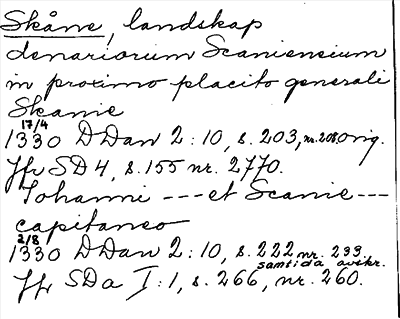 Skåne, landskap
denariorum Scaniensium
in proximo placito generali
Skanie
17/4
1330 DDan 2:10, s. 203, nr. 208 orig.
Jfr SD 4, s. 155 nr. 2770.
Johanni --- et Scanie ---
capitaneo
2/8
1330 DDan 2:10, s. 222 nr. 233
samtida avskr.
Jfr SDa I:1, s. 266, nr. 260.